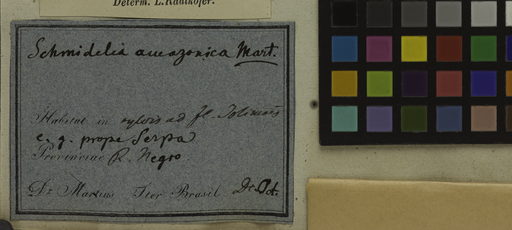 Determ. L. Radlkofer.
Schmidelia amazonica Mart.
Habitat in sylvis ad fl. Solimoës
e. g. prope Serpa
Provinciae R. Negro
Dr. Martius Iter Brasil. Dc. Oct.